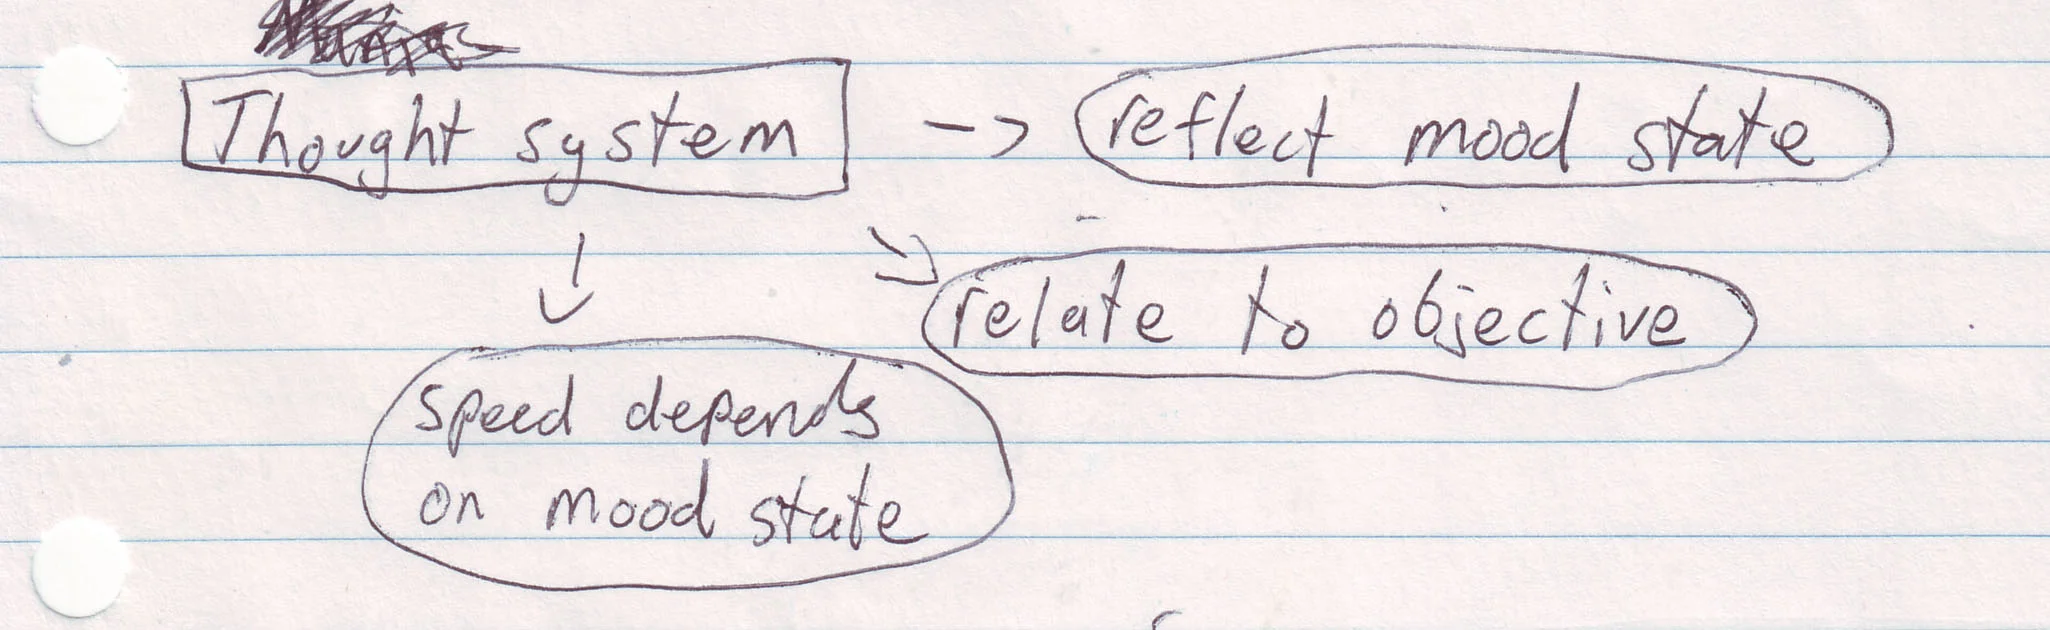 Thought system -> reflect mood state
relate to objective
speed depends
on mood state